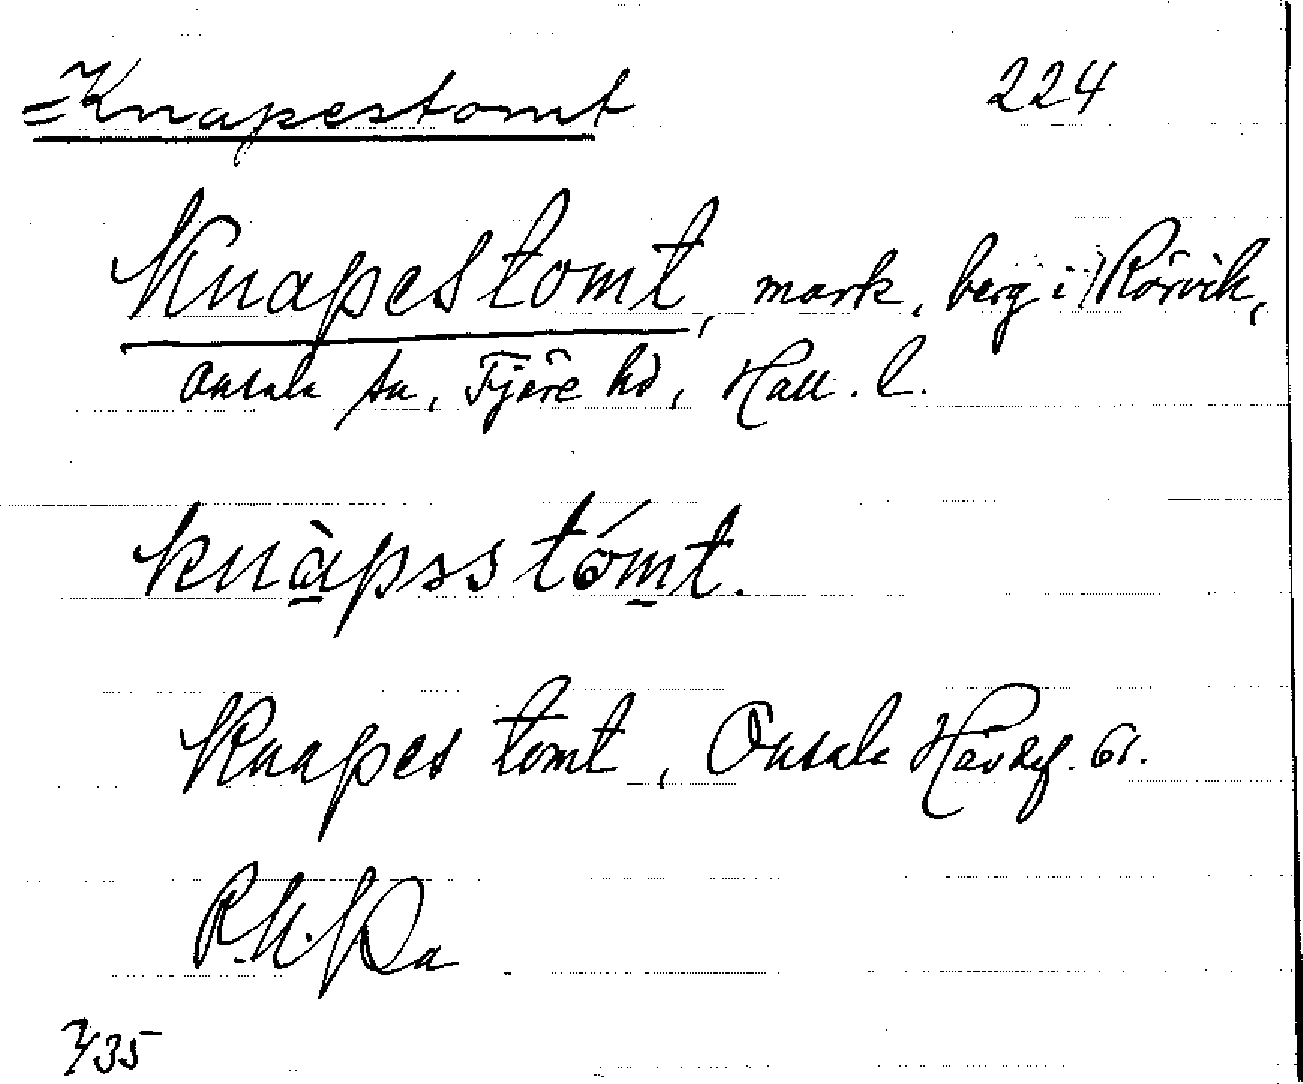 =Knapestomt 224
Knapestomt, mark, berg i Rörvik,
Onsala sn, Fjäre hd, Hall. l.
knàpsstómt.
Knapes tomt, Onsala Hävdef. 61.
7/35